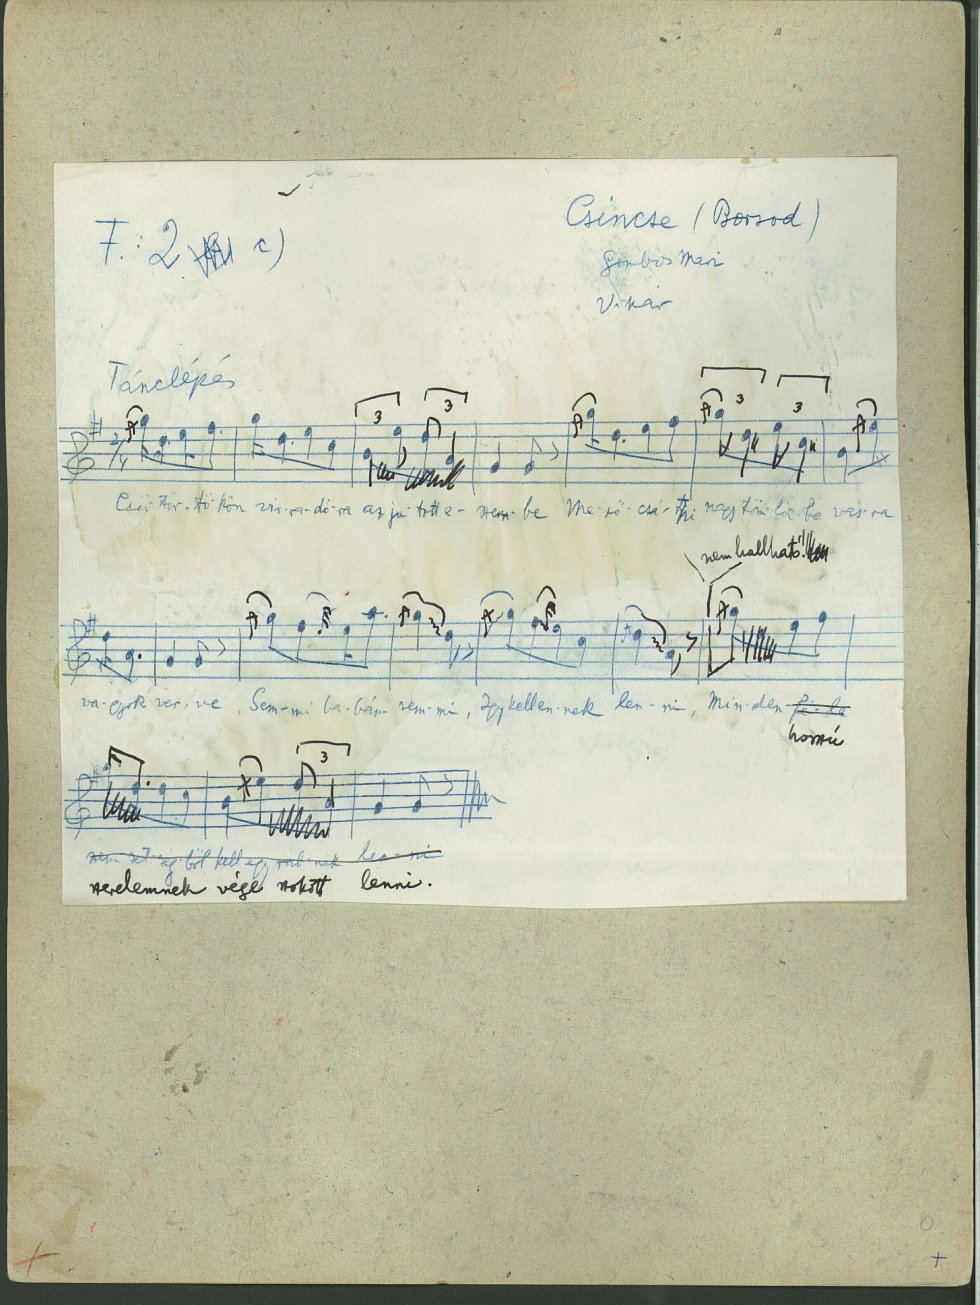 F. 2 c)
Csincse (Borsod)
Gombos Mari
Vikár
Tánclépés
3 3 3 3
2/4
Csü-tör-tö-kön vir-ra-dó-ra az ju-tott e- szem-be Me-ző-csá-thi nagy töm-löc-be vas-ra
nem hallható!
va-gyok ver-ve, Sem-mi ba-bám sem-mi, Így kellen-nek len-ni, Min-den
hosszú
3
szerelemnek vége szokott lenni.